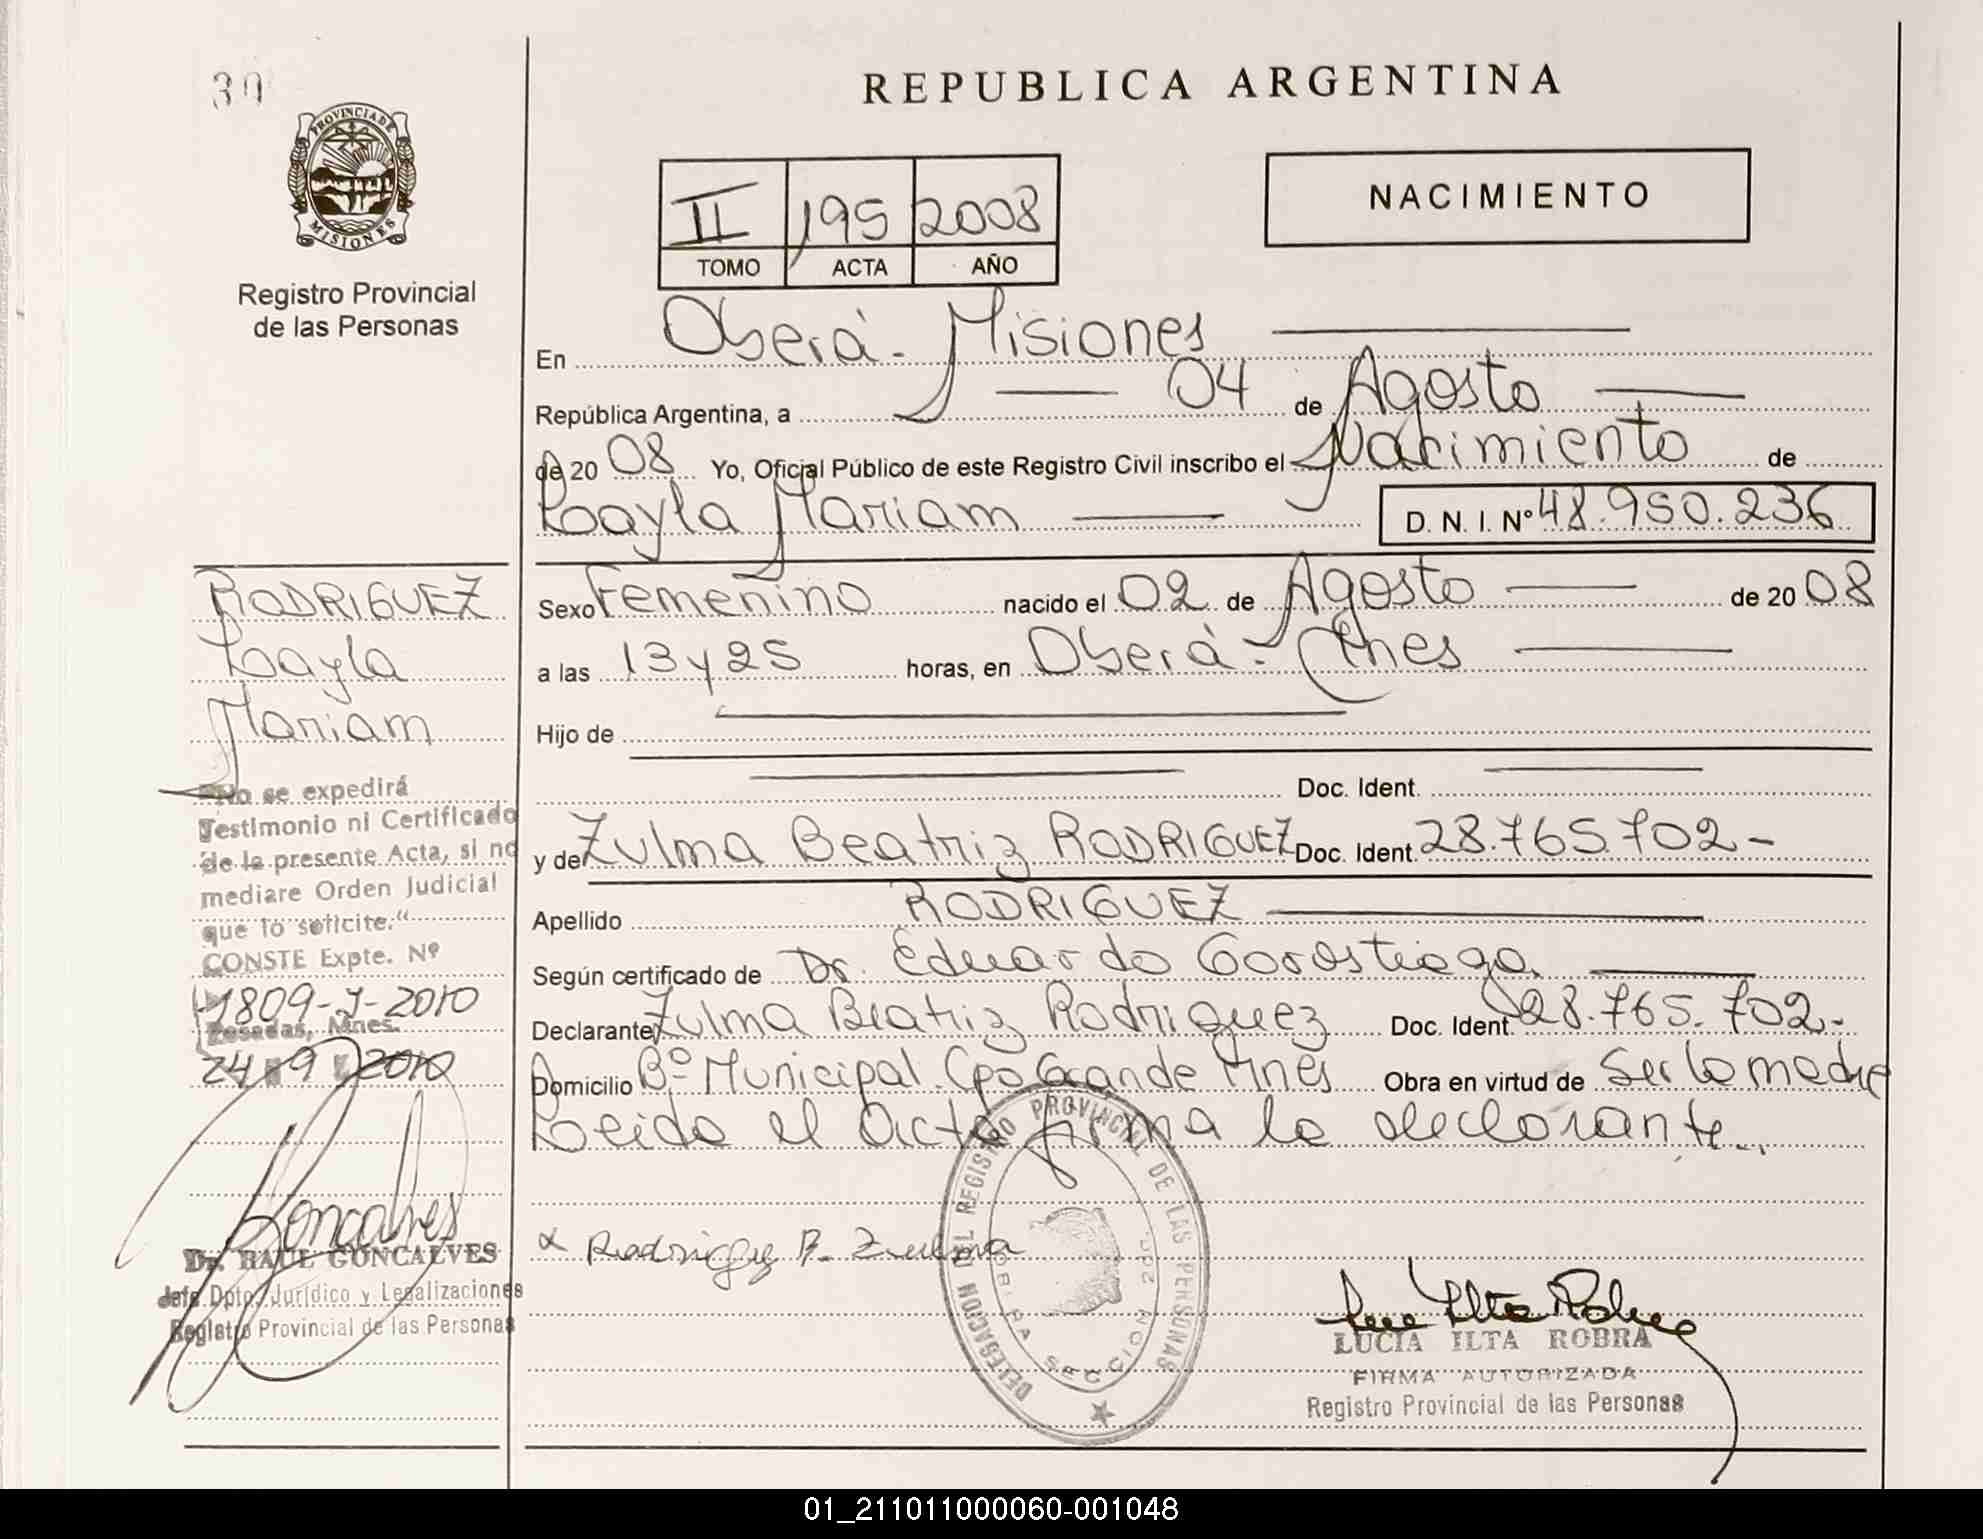 39
PROVINCIA DE
MISIONES
Registro Provincial
de las Personas
REPUBLICA ARGENTINA
II 195 2008
TOMO ACTA AÑO
NACIMIENTO
En Oberá - Misiones
República Argentina, a 04 de Agosto
de 20 08 Yo, Oficial Público de este Registro Civil inscribo el Nacimiento de
Layla Mariam
D. N. I. Nº 48.950.236
Sexo Femenino nacido el 02 de Agosto de 20 08
a las 13 y 25 horas, en Oberá - Mnes
Hijo de
Doc. Ident.
y de Zulma Beatriz RODRIGUEZ Doc. Ident. 28.765.702-
Apellido RODRIGUEZ
Según certificado de Dr. Eduardo Gorostiaga
Declarante Zulma Beatriz Rodriguez Doc. Ident. 28.765.702-
Domicilio Bº Municipal. Cpo Grande Mnes Obra en virtud de Ser la madre
Leida el Acta firma la declarante..
RODRIGUEZ
Layla
Mariam
"No se expedirá
Testimonio ni Certificado
de la presente Acta, si no
mediare Orden Judicial
que lo solicite."
CONSTE Expte. Nº
1809-J-2010
Posadas, Mnes.
24 9 2010
Goncalves
Dr. RAUL GONCALVES
Jefe Dpto. Jurídico y Legalizaciones
Registro Provincial de las Personas
x Rodriguez B. Zulma
DELEGACION DEL REGISTRO PROVINCIAL DE LAS PERSONAS
SECCION 2da
LUCIA ILTA ROBRA
FIRMA AUTORIZADA
Registro Provincial de las Personas
01_211011000060-001048